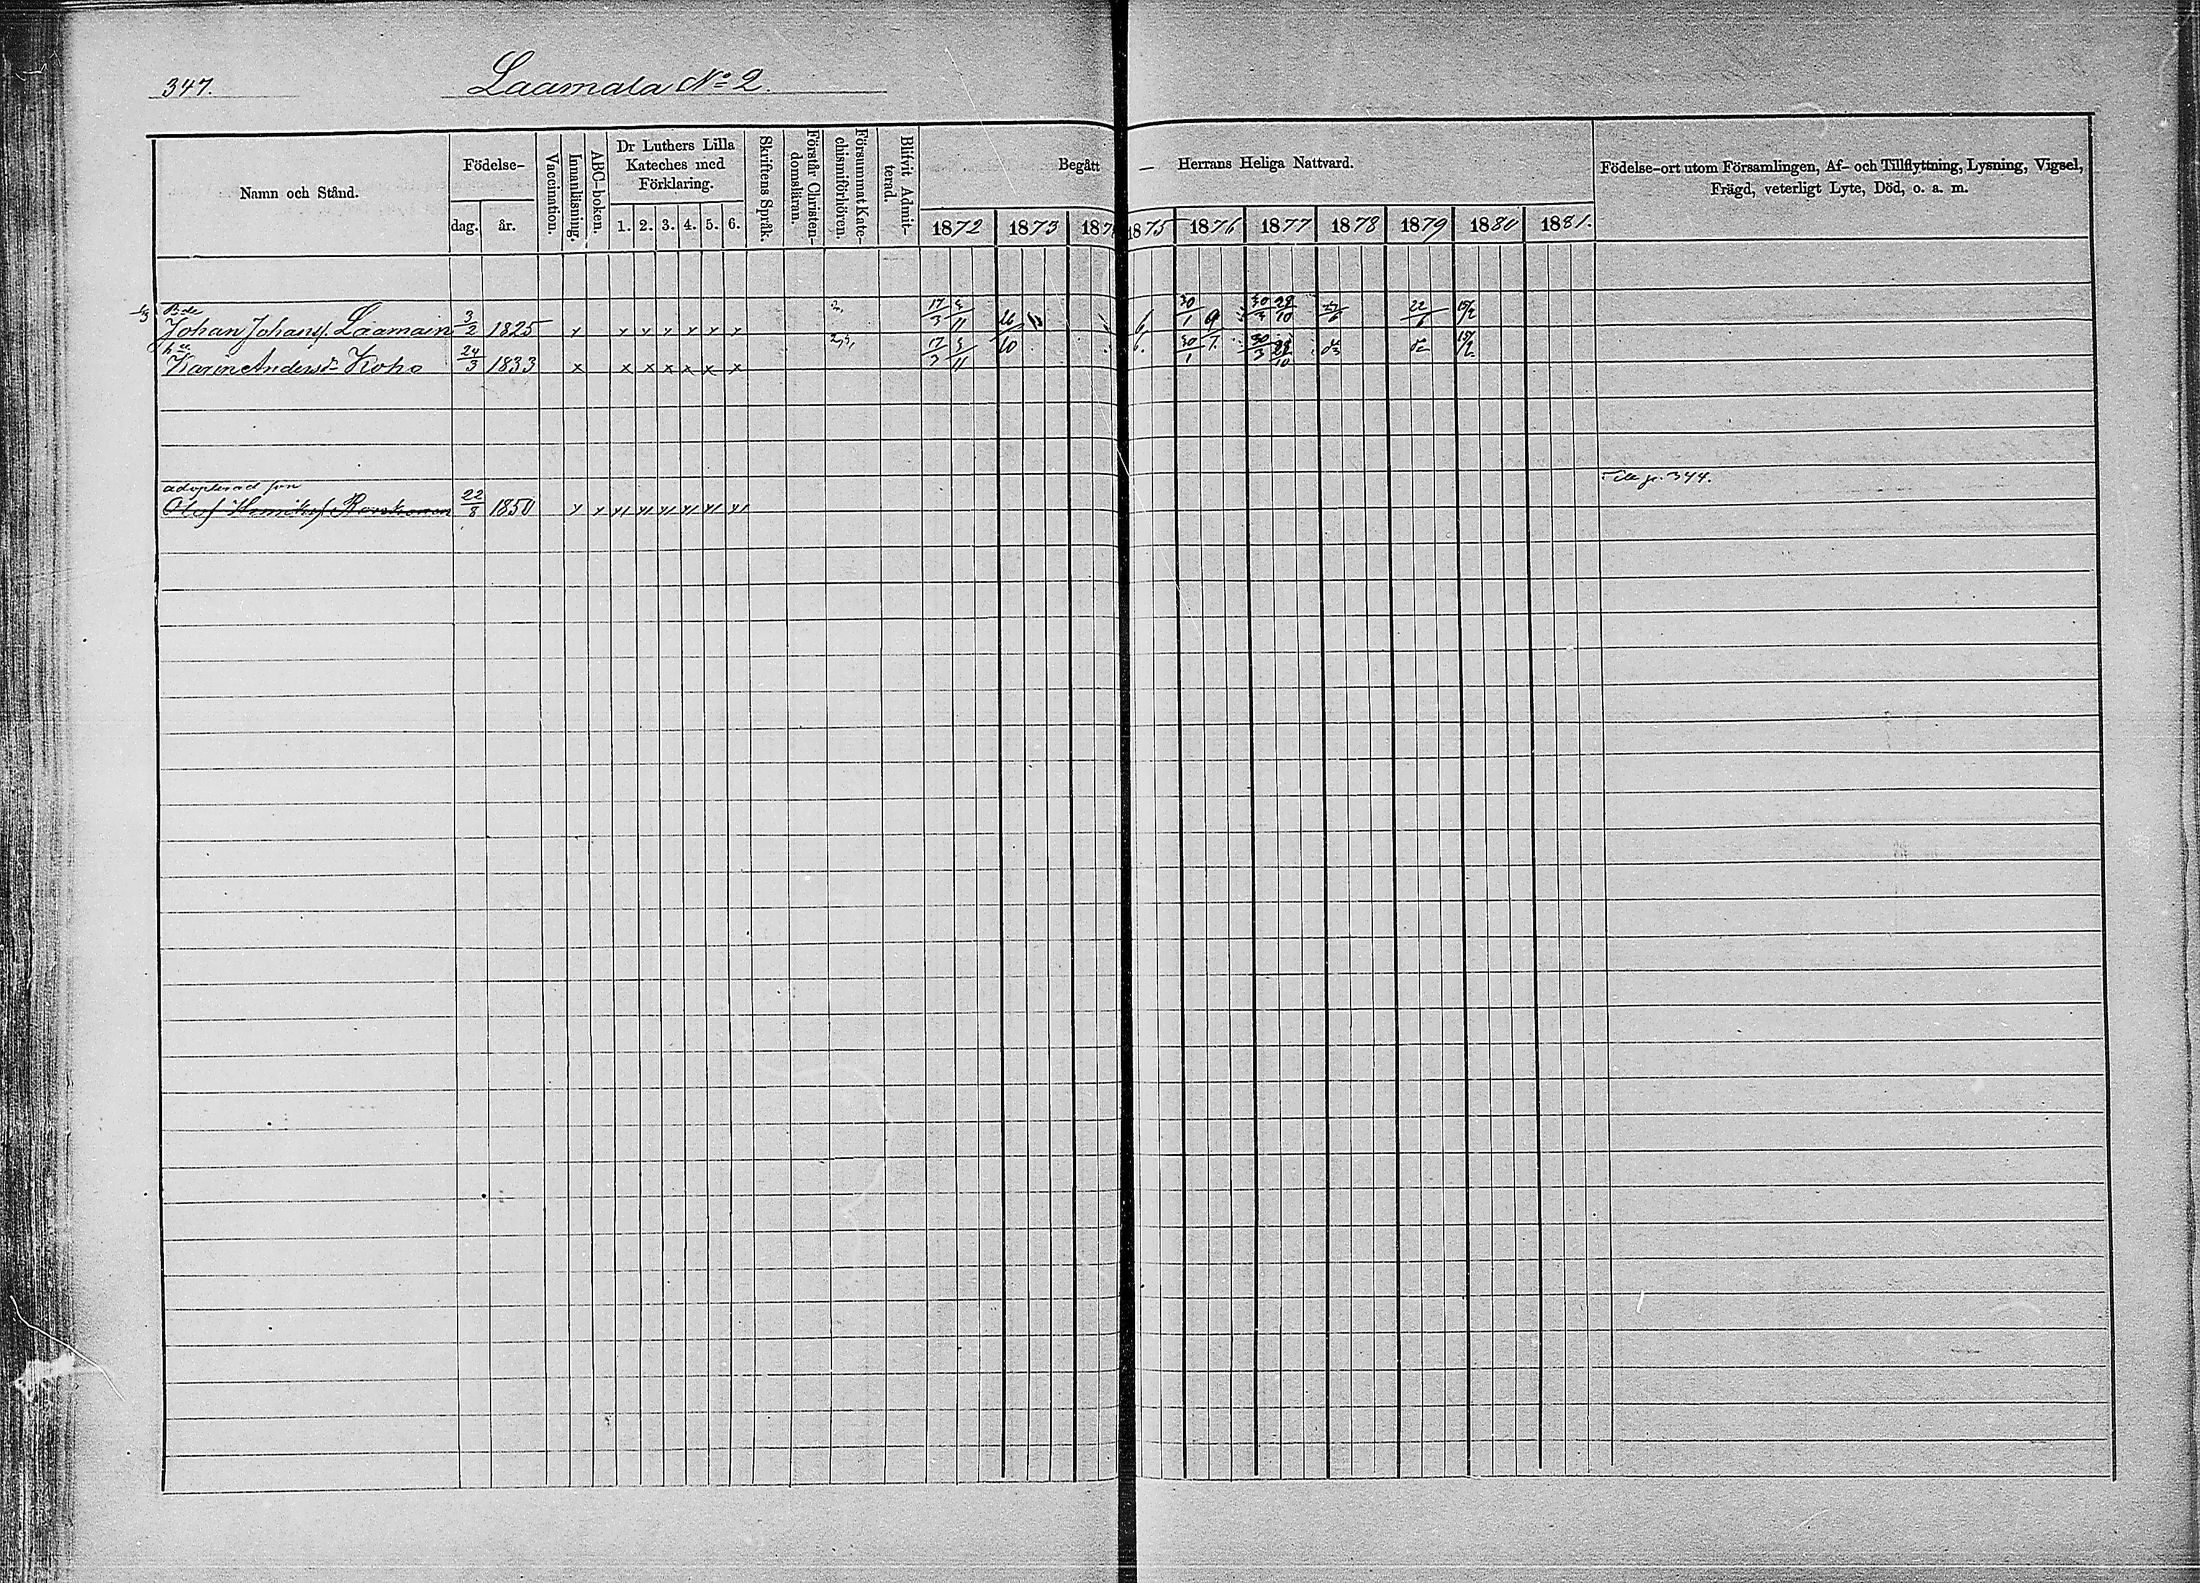 347.
Laamala No 2.
Namn och Stånd.
Födelse-
dag.
år.
Vaccination.
Innanläsning.
ABC-boken.
Dr Luthers Lilla
Kateches med
Förklaring.
1. 2. 3. 4. 5. 6.
Skriftens Språk.
Förstår Christen-
domsläran.
Försummat Kate-
chismiförhören.
Blifvit Admit-
terad.
Begått — Herrans Heliga Nattvard.
1872 1873 187 1875 1876 1877 1878 1879 1880 1881.
Födelse-ort utom Församlingen, Af- och Tillflyttning, Lysning, Vigsel,
Frägd, veterligt Lyte, Död, o. a. m.
Bde
Johan Johansf. Laamain 3/2 1825 x x x x x x x 2, 17/3 3/11 30/1 30/3 28/10 22/6 15/2
Karin Andersd Koho 24/3 1833 x x x x x x x 2,3, 17/3 3/11 30/1 30/3 28/10 15/2
adopterad son
Olof Henriksf 22/8 1850 p. 344.